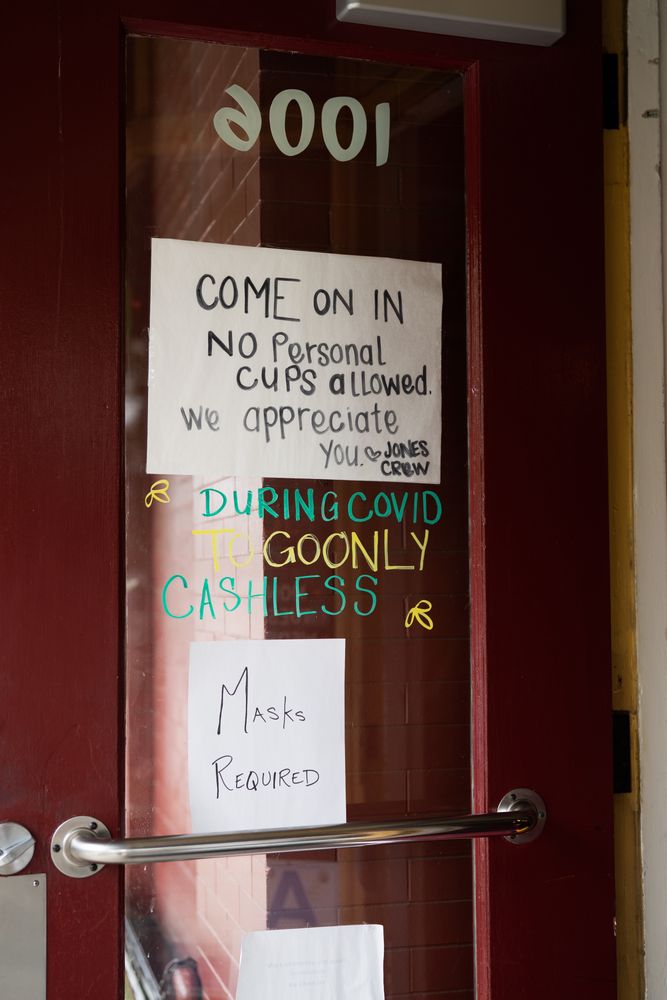 1006
COME ON IN
NO Personal
CUPS allowed.
We appreciate
you. ♡ JONES
CREW
DURING COVID
TO GO ONLY
CASHLESS
Masks
Required
A